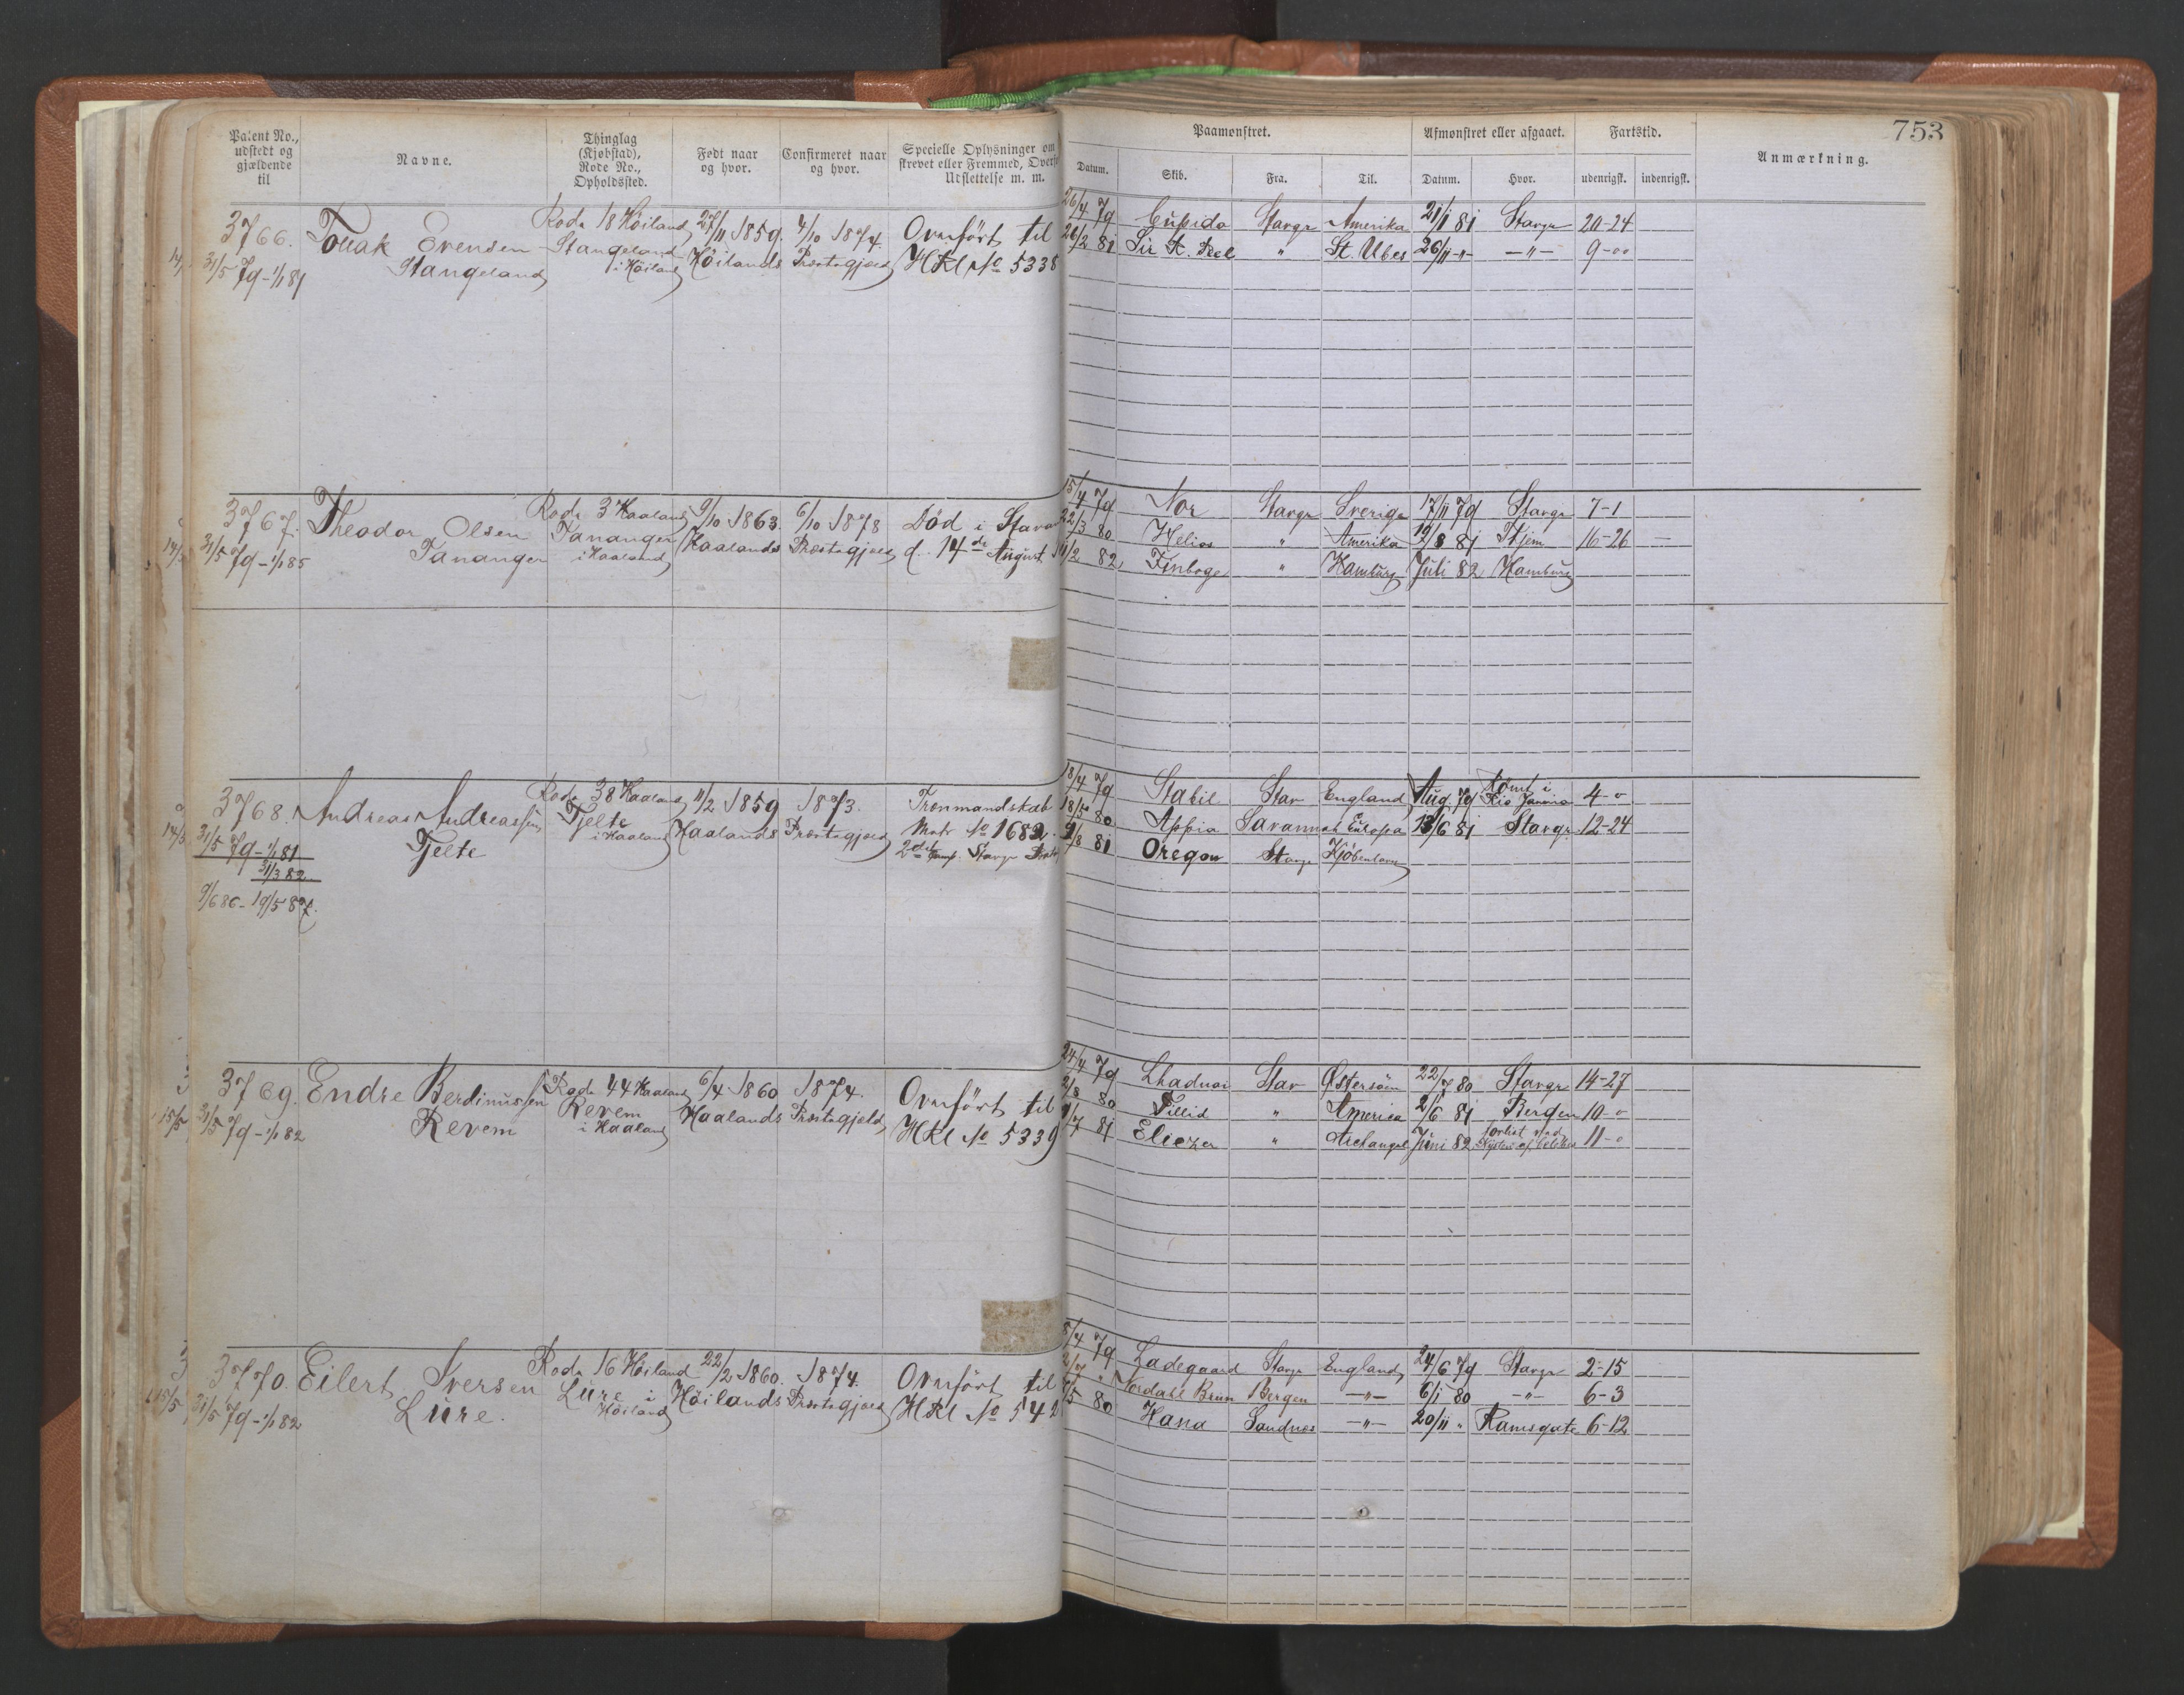 753
Patent No., udstedt og gjældende til
Navne.
Thinglag (Kjøbstad), Rode No., Opholdssted.
Født naar og hvor.
Confirmeret naar og hvor.
Specielle Oplysninger om
skrevet eller Fremmed, Overf
Udslettelse m. m.
Paamønstret.
Afmønstret eller afgaaet.
Fartstid.
Anmærkning.
Datum. Skib. Fra. Til. Datum. Hvor. udenrigsk. indenrigsk.
3766. Tollak Evensen Rode 18 Höiland 27/11 1859. 4/10 1874. Overført til
31/5 79 - 1/1 81 Stangeland Stangeland i Höiland Höilands Præstegjæld HKl No 5338
26/4 79 Cupido Stavgr Amerika 21/1 81 Stavgr 20-24
26/2 81 Sir R. Peel " St. Ubes 26/11 -"- -"- 9-00
3767. Theodor Olsen Rode 3 Haaland 9/10 1863 6/10 1878 Död i Stavan
31/5 79 - 1/1 85 Tananger Tananger i Haaland Haalands Præstegjæld d. 14de August
15/4 79 Nor Stavgr Sverige 17/11 79 Stavgr 7-1
22/3 80 Helios " Amerika 12/8 81 Hjem 16-26 —
1/2 82 Finboge " Hamburg Juli 82 Hamburg
3768. Andreas Andreassen Rode 38 Haaland 11/2 1859 1873. Trenmandskab
31/5 79 - 1/1 81 Tjelte Tjelte i Haaland Haalands Præstegjæld Matr No 1682.
31/3 82
9/6 86 - 19/5 87.
2det Komp. Stavgr
18/4 79 Stabil Stav England Aug. 79 Römt i Rio Janeiro 4-0
18/5 80 Appia Savannah Europa 13/6 81 Stavgr 12-24
9/8 81 Oregon Stavgr Kjöbenhavn
3769. Endre Berdinussen Rode 44 Haaland 6/4 1860 1874. Overført til
31/5 79 - 1/1 82 Revem Revem i Haaland Haalands Præstegjæld HKl No 5339
24/4 79 Lhadnoi Stav Østersöen 22/7 80 Stavgr 14-27
2/8 80 Fillid " America 2/6 81 Bergen 10-0
1/7 81 Eliezer " Archangel Juni 82 forlist ved Kysten af 11-0
3770. Eilert Iversen Rode 16 Höiland 22/2 1860. 1874. Overført til
31/5 79 - 1/1 82 Lure. Lure i Höiland Höilands Præstegjæld HKl No 542
5/4 79 Ladegaard Stavgr England 24/6 79 Stavgr 2-15
2/7 " Nordahl Brun Bergen -"- 6/1 80 -"- 6-3
5/5 80 Hana Sandnes -"- 20/11 " Ramsgate 6-12